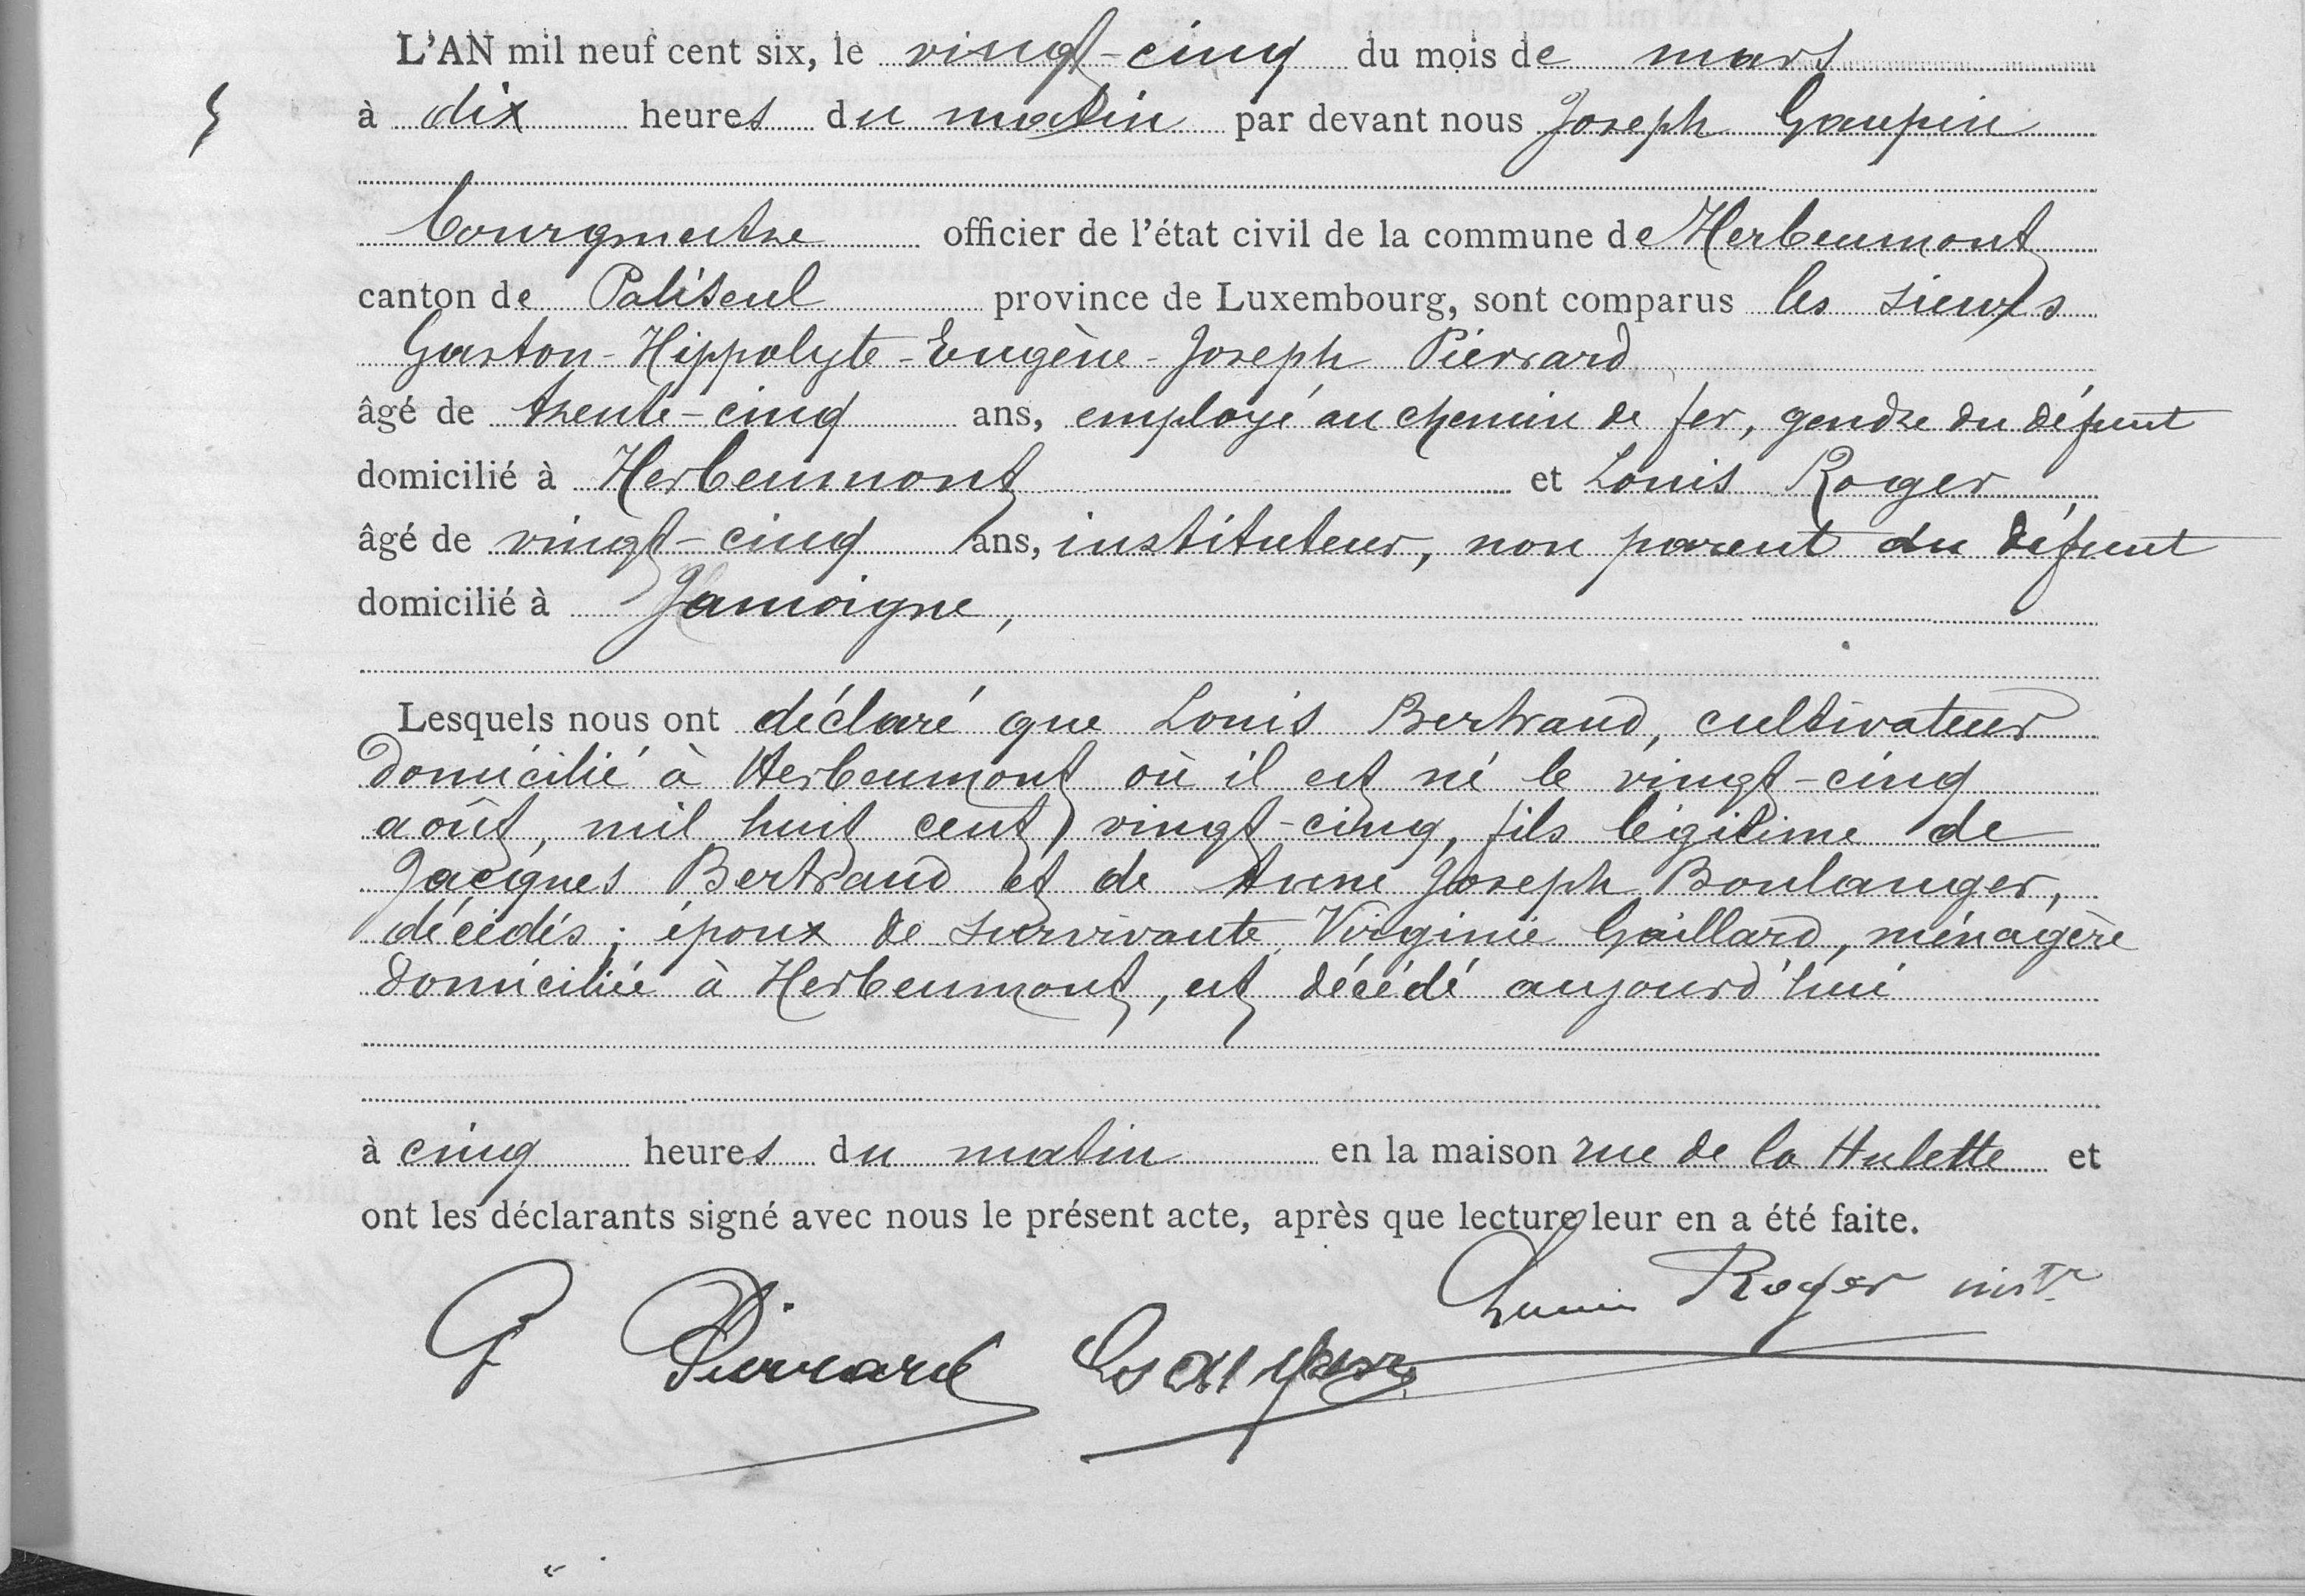 L'AN mil neuf cent six, le vingt-cinq du mois de mars
à dix heures du matin par devant nous Joseph Gaupin
bourgmestre officier de l'état civil de la commune de Herbeumont
canton de Paliseul province de Luxembourg, sont comparus les sieurs
Gaston-Hippolyte-Eugène-Joseph Piérrard
âgé de trente-cinq ans, employé au chemin de fer, gendre du défunt
domicilié à Herbeumont et Louis Roger
âgé de vingt-cinq ans, instituteur, non parent du défunt
domicilié à Jamoigne,
Lesquels nous ont déclaré que Louis Bertrand, cultivateur
domicilié à Herbeumont où il est né le vingt-cinq
août, mil huit cent vingt-cinq, fils légitime de
Jacques Bertrand et de Anne Joseph Boulanger,
décédés; époux de survivante Virginie Gaillard, ménagère
domiciliée à Herbeumont, est décédé aujourd'hui
à cinq heures du matin en la maison rue de la Hulette et
ont les déclarants signé avec nous le présent acte, après que lecture leur en a été faite.
Roger instr
G Pierrard Gaupin